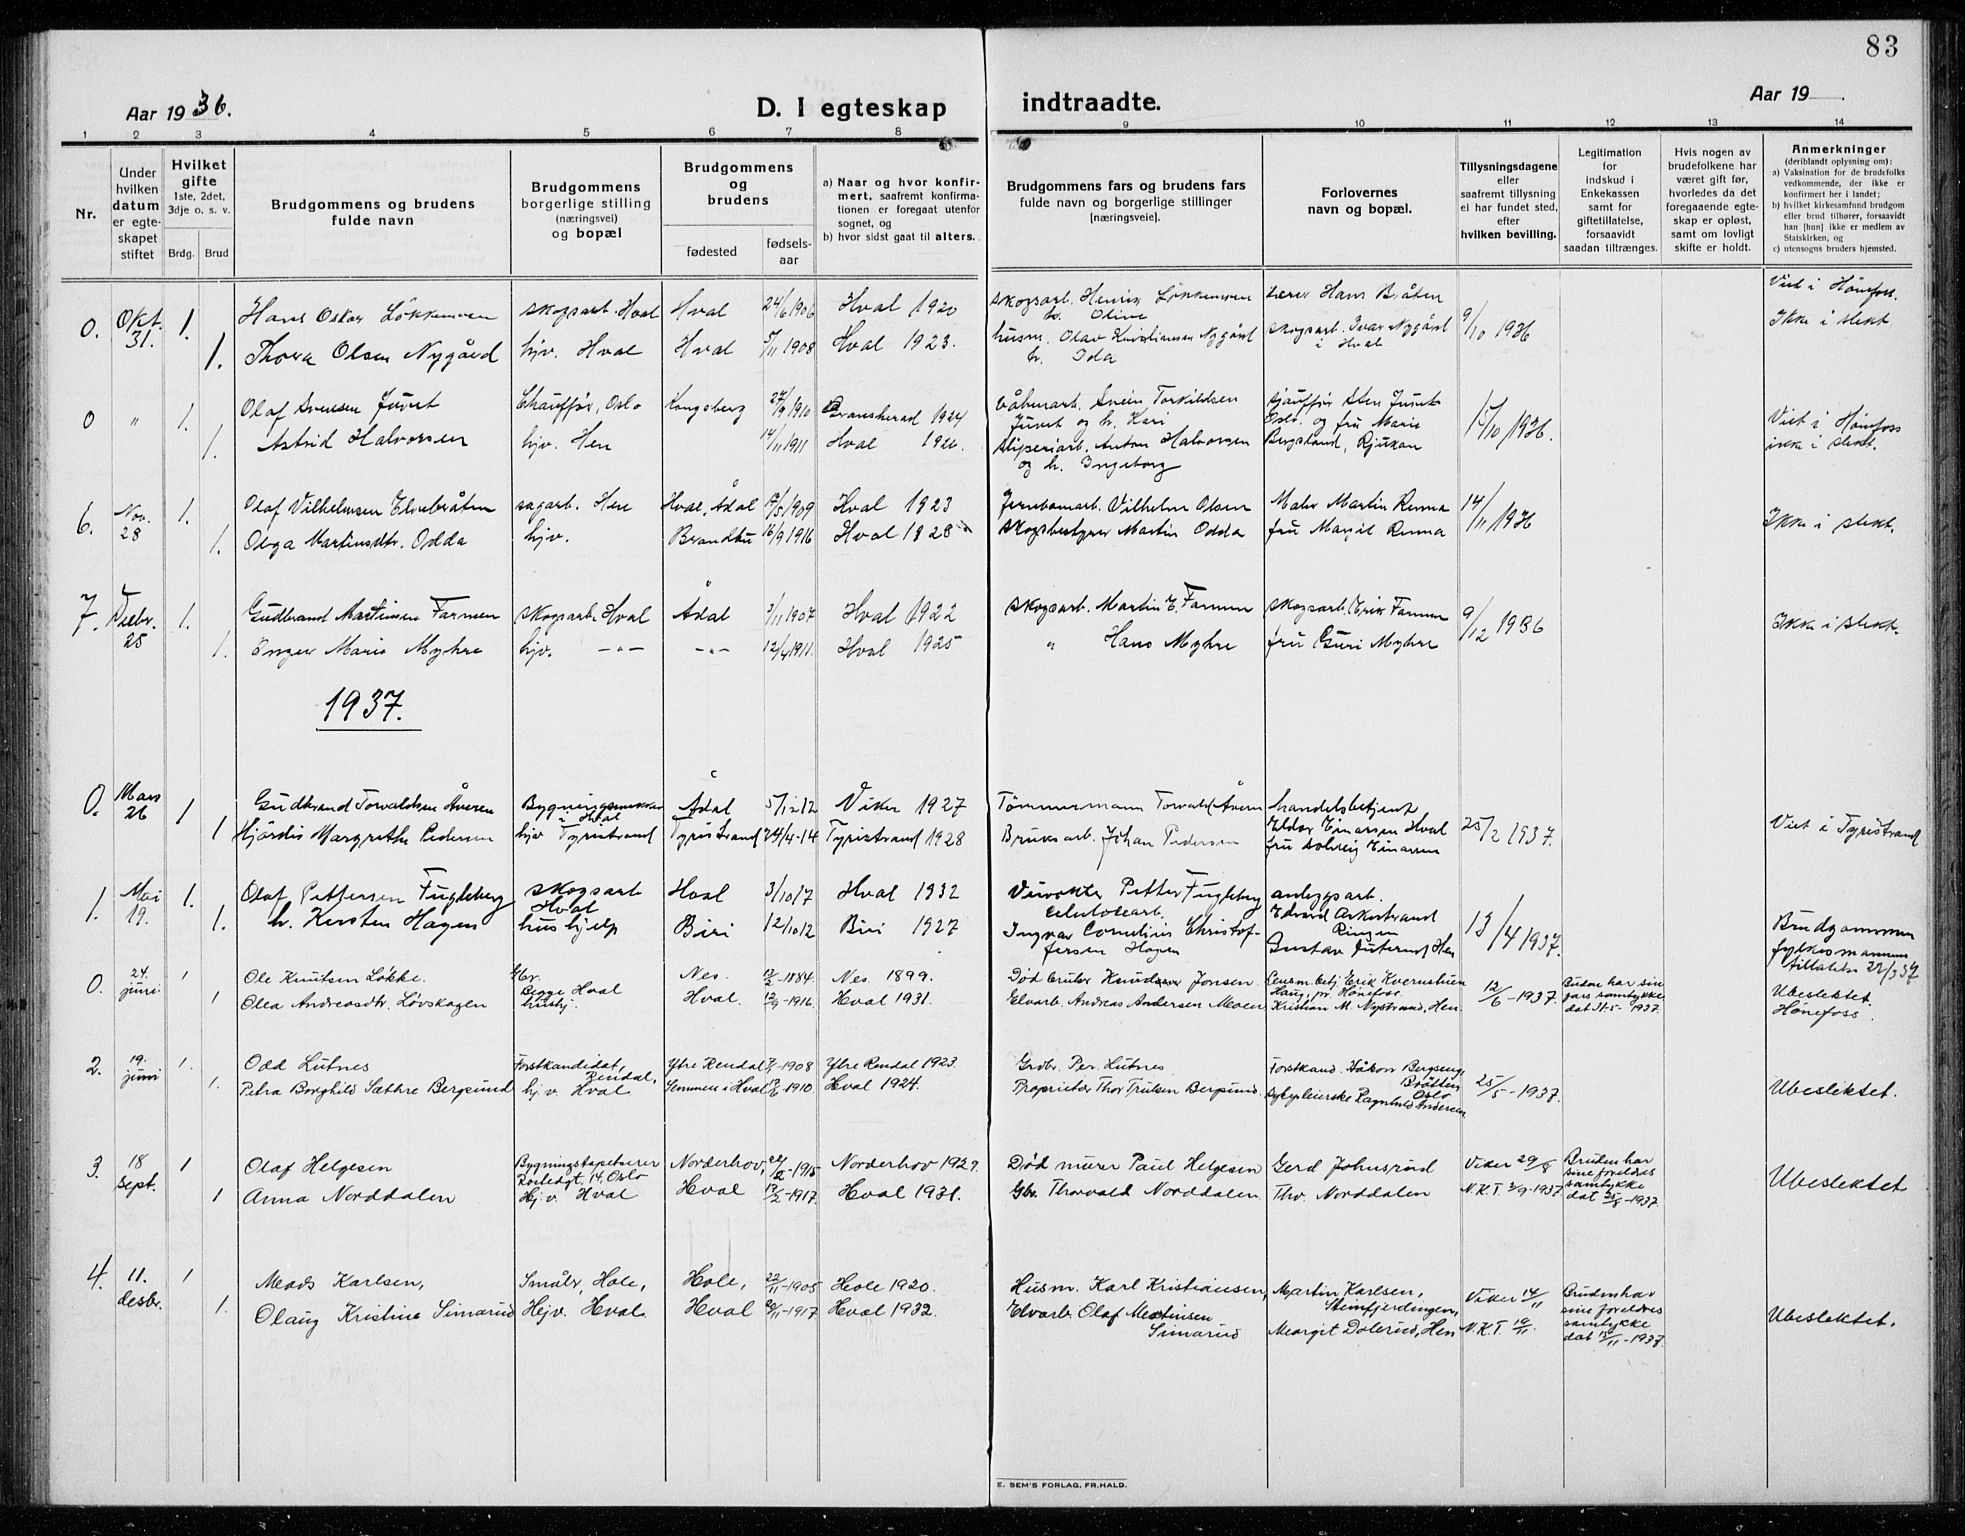 83
Aar 1936.
D. I egteskap
indtraadte.
Aar 19
1 2 3 4 5 6 7 8 9 10 11 12 13 14
Nr.
Under hvilken datum er egteskapet stiftet
Hvilket gifte
1ste, 2det, 3dje o. s. v.
Brdg. Brud
Brudgommens og brudens fulde navn
Brudgommens borgerlige stilling (næringsvei) og bopæl
Brudgommens og brudens
fødested
fødsels-aar
a) Naar og hvor konfirmert, saafremt konfirmationen er foregaat utenfor sognet, og
b) hvor sidst gaat til alters.
Brudgommens fars og brudens fars fulde navn og borgerlige stillinger [næringsveie].
Forlovernes navn og bopæl.
Tillysningsdagene eller saafremt tillysning ei har fundet sted, efter hvilken bevilling.
Legitimation for indskud i Enkekassen samt for giftetillatelse, forsaavidt saadan tiltrænges.
Hvis nogen av brudefolkene har været gift før, hvorledes da det foregaaende egteskap er opløst, samt om lovligt skifte er holdt.
Anmerkninger
(deriblandt oplysning om):
a) Vaksination for de brudefolks vedkommende, der ikke er konfirmert her i landet;
b) hvilket kirkesamfund brudgom eller brud tilhører, forsaavidt han [hun] ikke er medlem av Statskirken, og
c) utensogns bruders hjemsted.
0. Okt. 31. 1. Hans Oskar Løkkemoen skogsarb. Hval Hval 24/6 1906 Hval 1920 skogsarb. Henrik Løkkemoen h. Oline Lærer Hans Bråten 9/10 1936 Viet i Hønefoss.
1. Thora Olsen Nygård hjv. Hval Hval 5/11 1908 Hval 1923. husm. Olav Kristiansen Nygård h. Ida skogsarb. Ivar Nygård i Hval Ikke i slekt
0 " 1. Olaf Svensen Juvet Chauffør, Oslo Kongsberg 27/9 1910 Gransherad 1924 Våbenarb. Svein Torkildsen Juvet og h. Kari sjauffør Sten Juvet Oslo. og fru Marie Bergsland, Rjukan 15/10 1936. Viet i Hønefoss
1. Astrid Halvorsen hjv. Hen 14/11 1911 Hval 1926. Sliperiarb. Anton Halvorsen og h. Ingeborg ikke i slekt.
6. Nov. 28 1. Olaf Vilhelmsen Elvebråten sagarb. Hen Hval, Ådal 17/5 1909 Hval 1923 Jernbanearb. Vilhelm Olsen Maler Martin Renna 14/11 1936 Ikke i slekt.
1. Olga Martinsdtr. Odda hjv. Brandbu 16/9 1916 Hval 1928 Skogsbestyrer Martin Odda fru Margit Renna
7. Desbr. 25 1. Gudbrand Martinsen Farmen skogsarb. Hval Ådal 3/11 1907 Hval 1922 skogsarb. Martin E. Farmen skogsarb. Erik Farmen 9/12 1936 Ikke i slekt.
1. Inger Marie Myhre hjv. -"- -"- 12/4 1911. Hval 1925 " Hans Myhre fru Guri Myhre
1937.
0. Mars 26 1 Gudbrand Torvaldsen Åveren i Hval Ådal 5/12 12 Viker 1927 Tømmermann Torvald Åveren handelsbetjent Eldor Einarsen Hval 25/2 1937. Viet i Tyristrand
1 Hjørdis Margrethe Pedersen hjv Tyristrand Tyristrand 24/4-14 Tyristrand 1928 Bruksarb. Johan Pedersen fru Solveig Einarsen
1. Mai 19. 1. Olaf Pettersen Fugleberg skogsarb Hval Hval 3/10 17 Hval 1932 Petter Fugleberg anleggsarb. Edvard Askerstrand Ringen 13/4 1937. Brudgommen fylkesmannens tillatelse 22/3 37
1. h. Kersten Hagen hushjelp Biri 12/10 12 Biri 1927 celulosearb. Ingvar Cornelius Christoffersen Hagen Gustav Juterud, Hen
0. 24. juni 1 Ole Knutsen Løkke. Gbr. Begge Hval Nes. 12/2-1884. Nes. 1899. Død Gruber Knud Jonsen. Lensm.betj. Erik Kvernstuen Haug, pr. Hønefoss. 12/6-1937. Bruden har sin fars samtykke dat 31-5-1937. Ubeslektet
1 Olea Andreasdtr. Lövskogen hushj. Hval. 12/9-1916. Hval 1931. Elvarb. Andreas Andersen Moen Kristian M. Nystrand, Hen. Hönefoss.
2. 19. juni 1. Odd Lutnes Forstkandidat, Rendal, Ytre Rendal 7/5-1908 Ytre Rendal 1923. Grdbr. Per Lutnes Forstkand. Håkon Bergseng Bråtten Oslo 25/5-1937. Ubeslektet.
1. Petra Borghild Sæthre Bergsund hj.v. Hval. Semmen i Hval 17/6-1910. Hval 1924. Proprietær Thor Trulsen Bergsund. Sykepleierske Ragnhild Andersen
3. 18 sept. 1 Olaf Helgesen Bygningstapetserer 14, Oslo Norderhov, 22/2-1915 Norderhov 1929. Død murer Paul Helgesen Gerd Johnsrud Viker 29/8 Bruden har sine foreldres samtykke dat 25/8-1937. Ubeslektet
1 Anna Norddalen Hj.v. Hval Hval 17/2-1917. Hval 1931. Gbr. Thorvald Norddalen. Thv. Norddalen N.K.T. 2/9-1937.
4. 11. desbr. 1 Mads Karlsen, Småbr, Hole, Hole, 22/11-1905 Hole 1920. Husm. Karl Kristiansen, Martin Karlsen, Steinfjerdingen, Viker 14/11 Bruden har sine foreldres samtykke dat 15/11-1937. Ubeslektet.
1. Olaug Kristine Simarud Hj.v. Hval. Hval 20/11-1917 Hval 1932. Elvarb. Olaf Martinsen Simarud Margit Dolerud, Hen N.K.T. 19/11.
E. SEM'S FORLAG, FR.HALD.